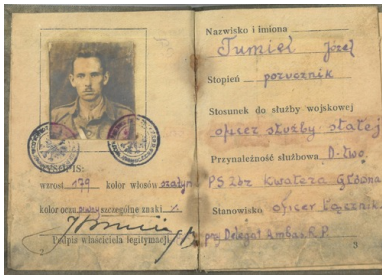 RYSOPIS:
wzrost 179 kolor włosów szatyn
kolor oczu piwny szczególne znaki
Podpis właściciela legitymacji
Nazwisko i imiona
Tumiel Józef
Stopień porucznik
Stosunek do służby wojskowej
oficer służby stałej
Przynależność służbowa D-two
PSZbr Kwatera Główna
Stanowisko oficer łącznik.
przy Delegat. Ambas. R.P.
3